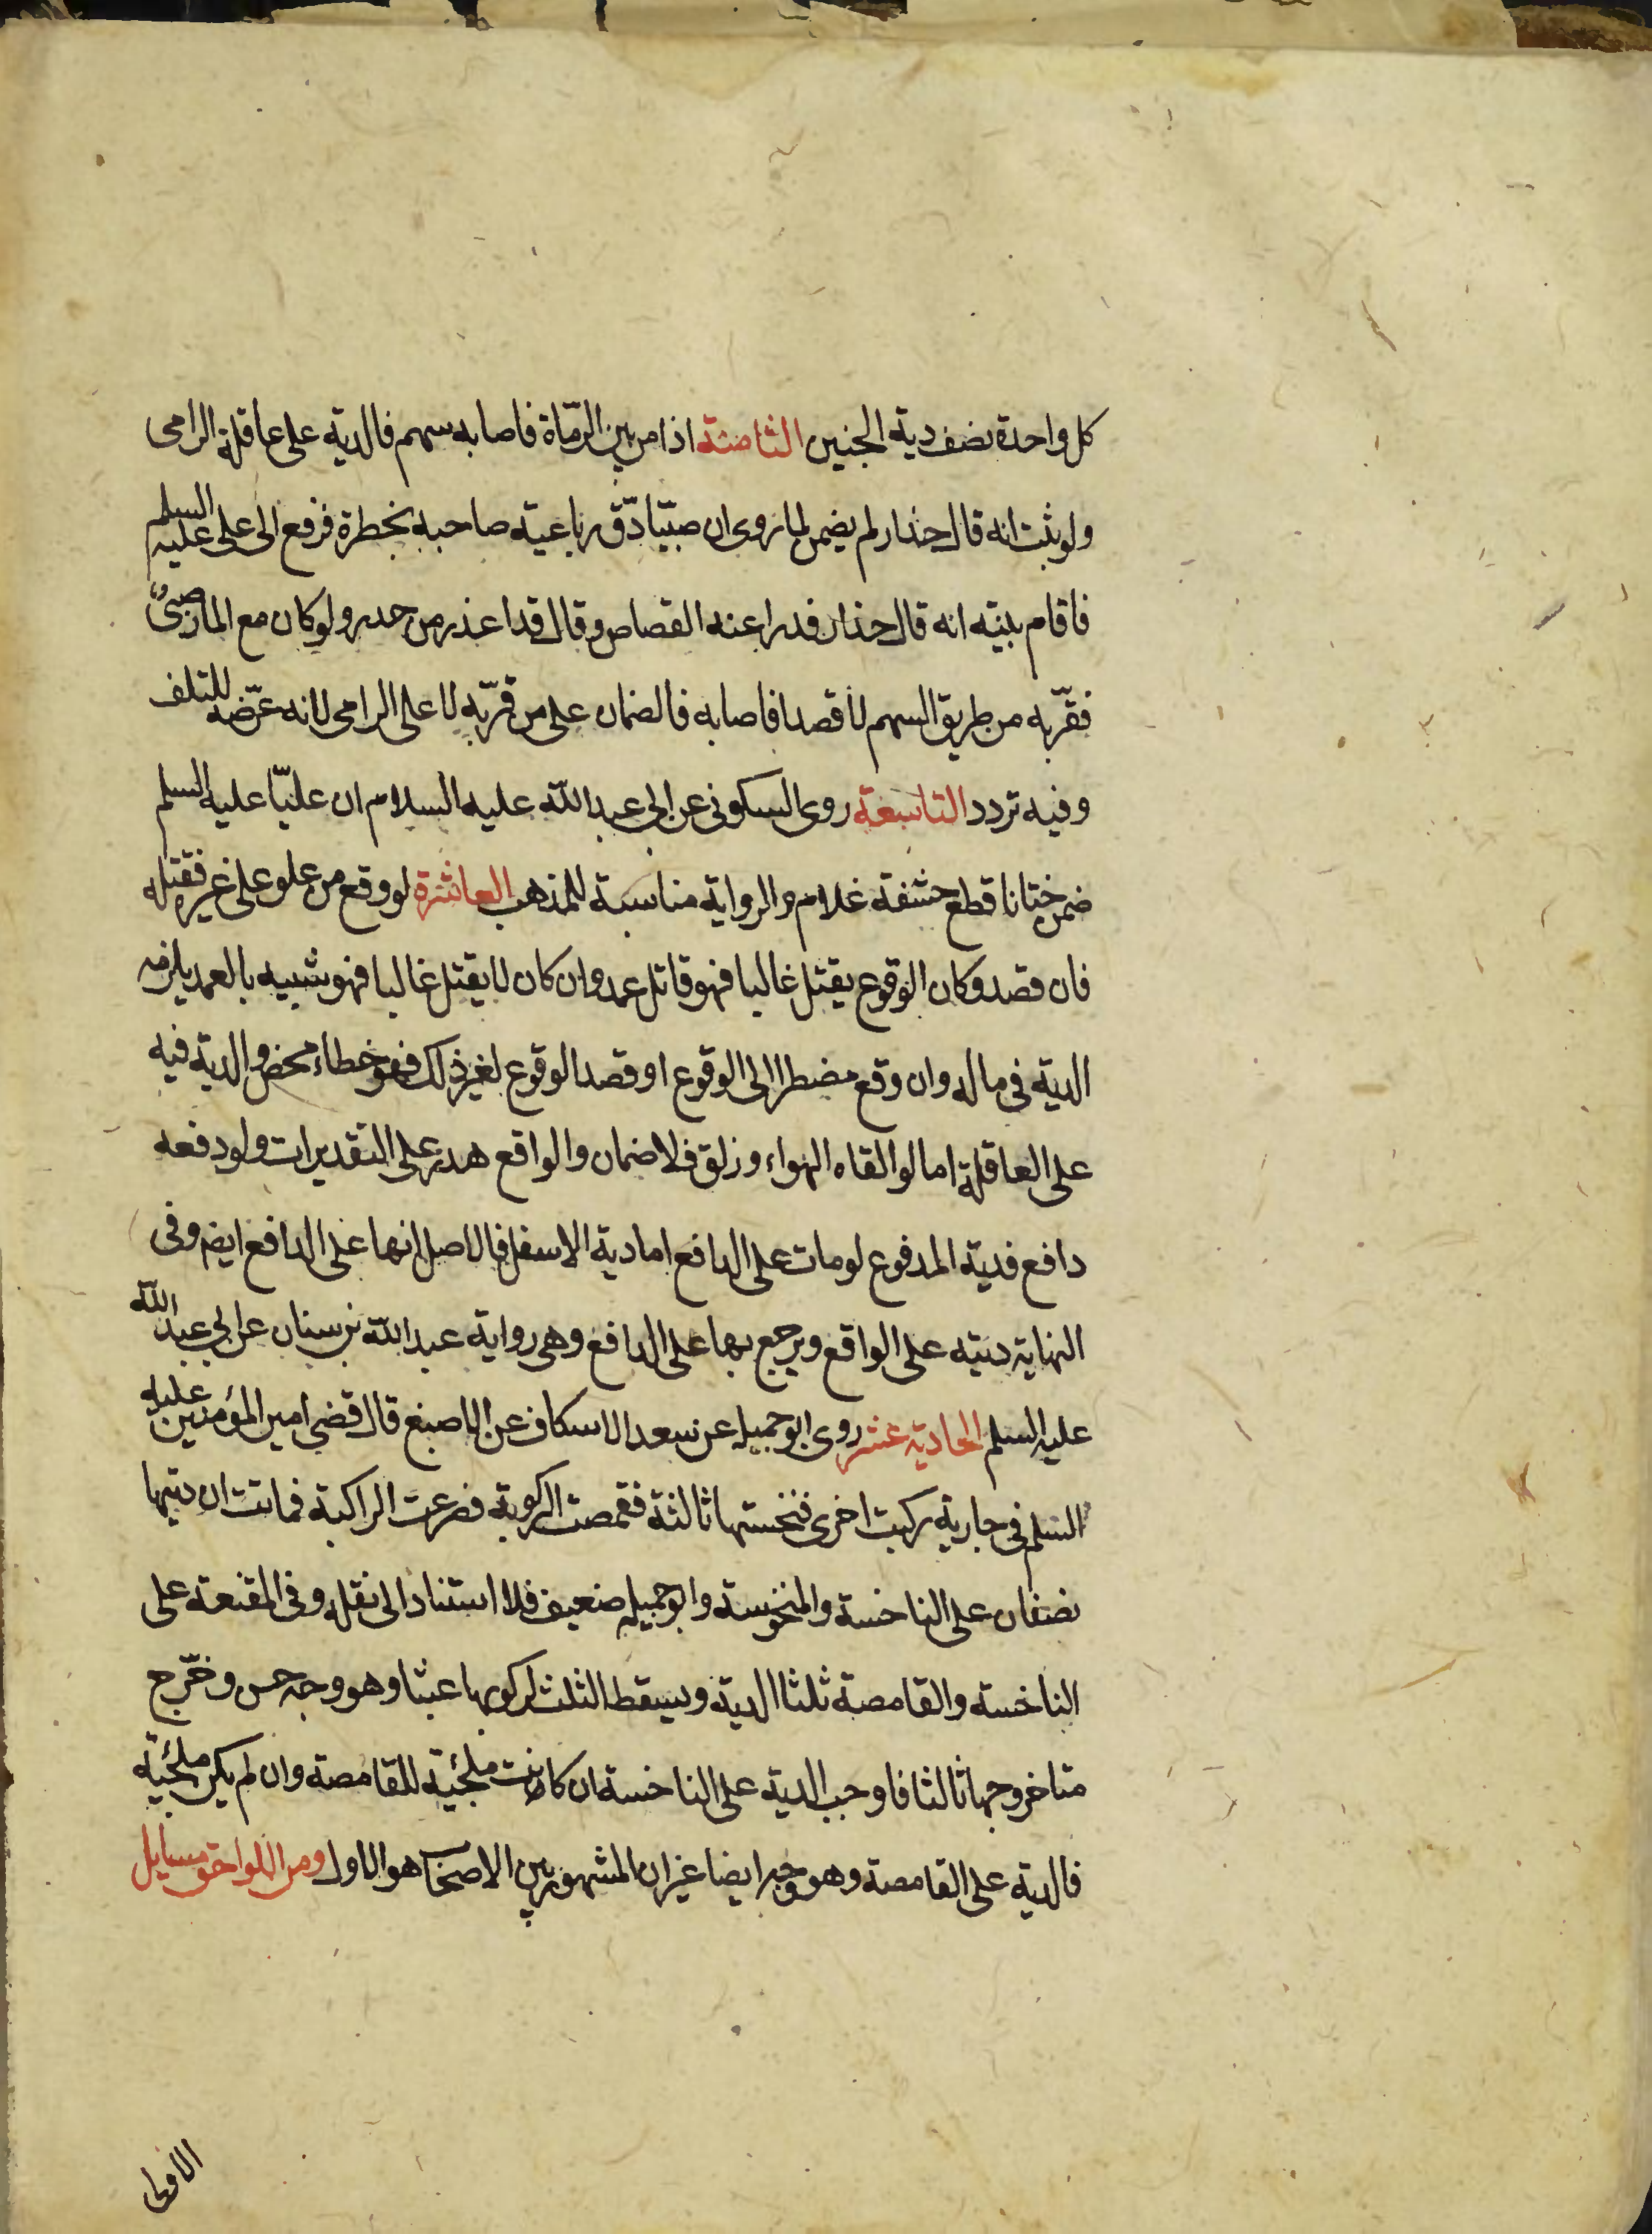 كل واحدة نصف دية الجنين الثامنة اذا مر بين الرّماة فاصابه سهم فالدية على عاقلة الرامى
ولو ثبت انه قال حذار لم يضمن لما روى ان صبيّا دّق رباعية صاحبه بخطره فرفع الى على عليه السلم
فاقام بينه انه قال حذار فدرا عنه القصاص وقال قد اعذر من حدر ولو كان مع المار صبىٌّ
فقرّبه من طريق السهم لا قصدا فاصابه فالضمان على من قرّبه لا على الرامى لانه عرّضه للتلف
وفيه تردد التاسعة روى السكونى عن ابى عبد الله عليه السلام ان عليّا عليه السلم
ضمن ختانا قطع حشفة غلام والرواية مناسبة للمذهب العاشرة لو وقع من علو على غيره فقتله
فان قصد وكان الوقوع يقتل غالبا فهو قاتل عمد وان كان لا يقتل غالبا فهو شبيه بالعمد يلزمه
الدية فى ماله وان وقع مضطرا الى الوقوع او قصد الوقوع لغير ذلك فهو خطاء محض والدية فيه
على العاقلة اما لو القاه الهواء و زلق فلا ضمان والواقع هدر على التقديرات ولو دفعه
دافع فدية المدفوع لو مات على الدافع اما دية الاسفل فالاصل انها على الدافع ايضه وفى
النهاية ديته على الواقع ويرجع بها على الدافع وهى رواية عبد الله بن سنان عن ابى عبد الله
عليه السلم الحادية عشر روى ابو جميله عن سعد الاسكاف عن الاصبغ قال قضى امير المؤمنين عليه
السلم فى جارية ركبت اخرى فنخستها ثالثة فقمصت المركوبة فصرعت الراكبة فماتت ان ديتها
نصفان على الناخسة والمنخوسة وابو جميله ضعيف فلا استناد الى نقله وفى المقنعة على
الناخسة والقامصة ثلثا الدية ويسقط الثلث لركوبها عبثا وهو وجه حسن وخرّج
متاخر وجها ثالثا فاوجب الدية على الناخسة ان كانت ملجئية للقامصة وان لم يكن ملجئية
فالدية على القامصة وهو وجه ايضا غير ان المشهور بين الاصحاب هو الاول ومن اللواحق مسايل
الاولى